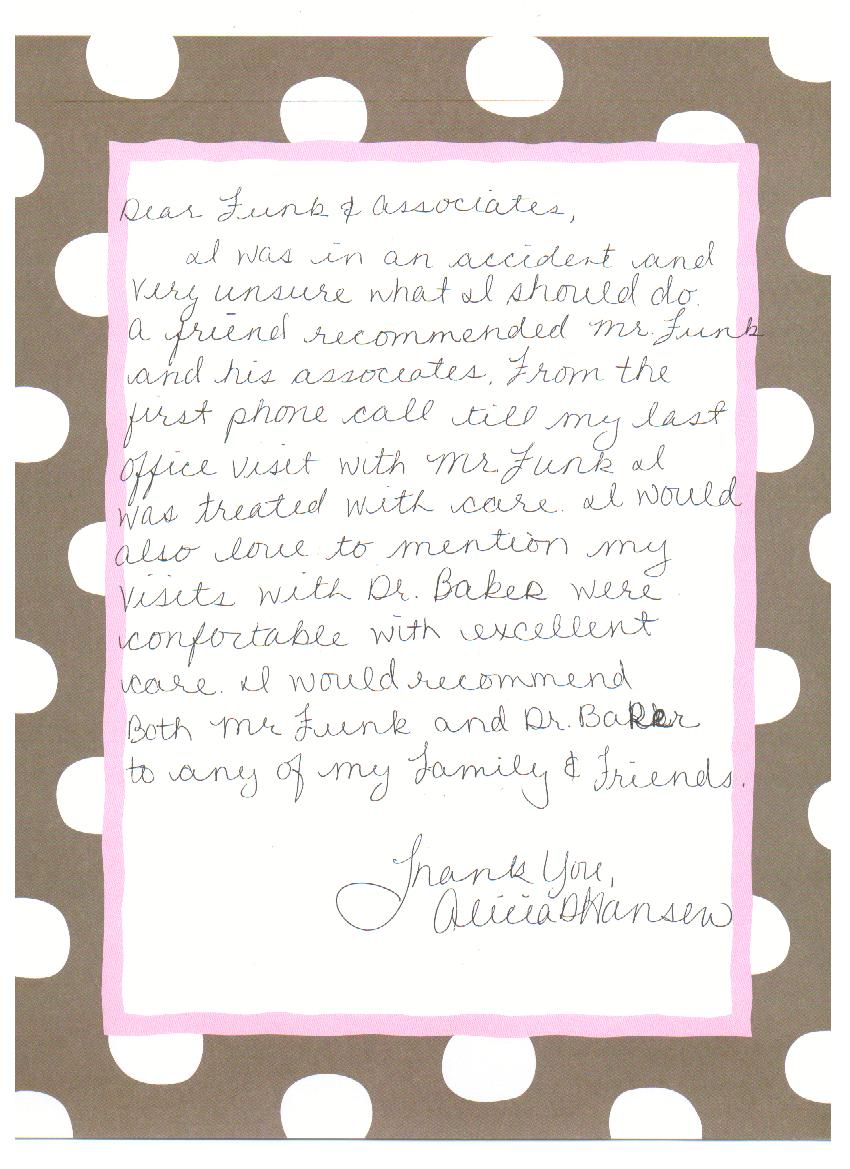 Dear Funk & Associates,
I was in an accident and
very unsure what I should do.
A friend recommended Mr. Funk
and his associates. From the
first phone call till my last
office visit with Mr Funk I
was treated with care. I would
also love to mention my
visits with Dr. Baker were
confortable with excellent
care. I would recommend
Both Mr Funk and Dr. Baker
to any of my Family & Friends.
Thank You,
Alicia D Hansen